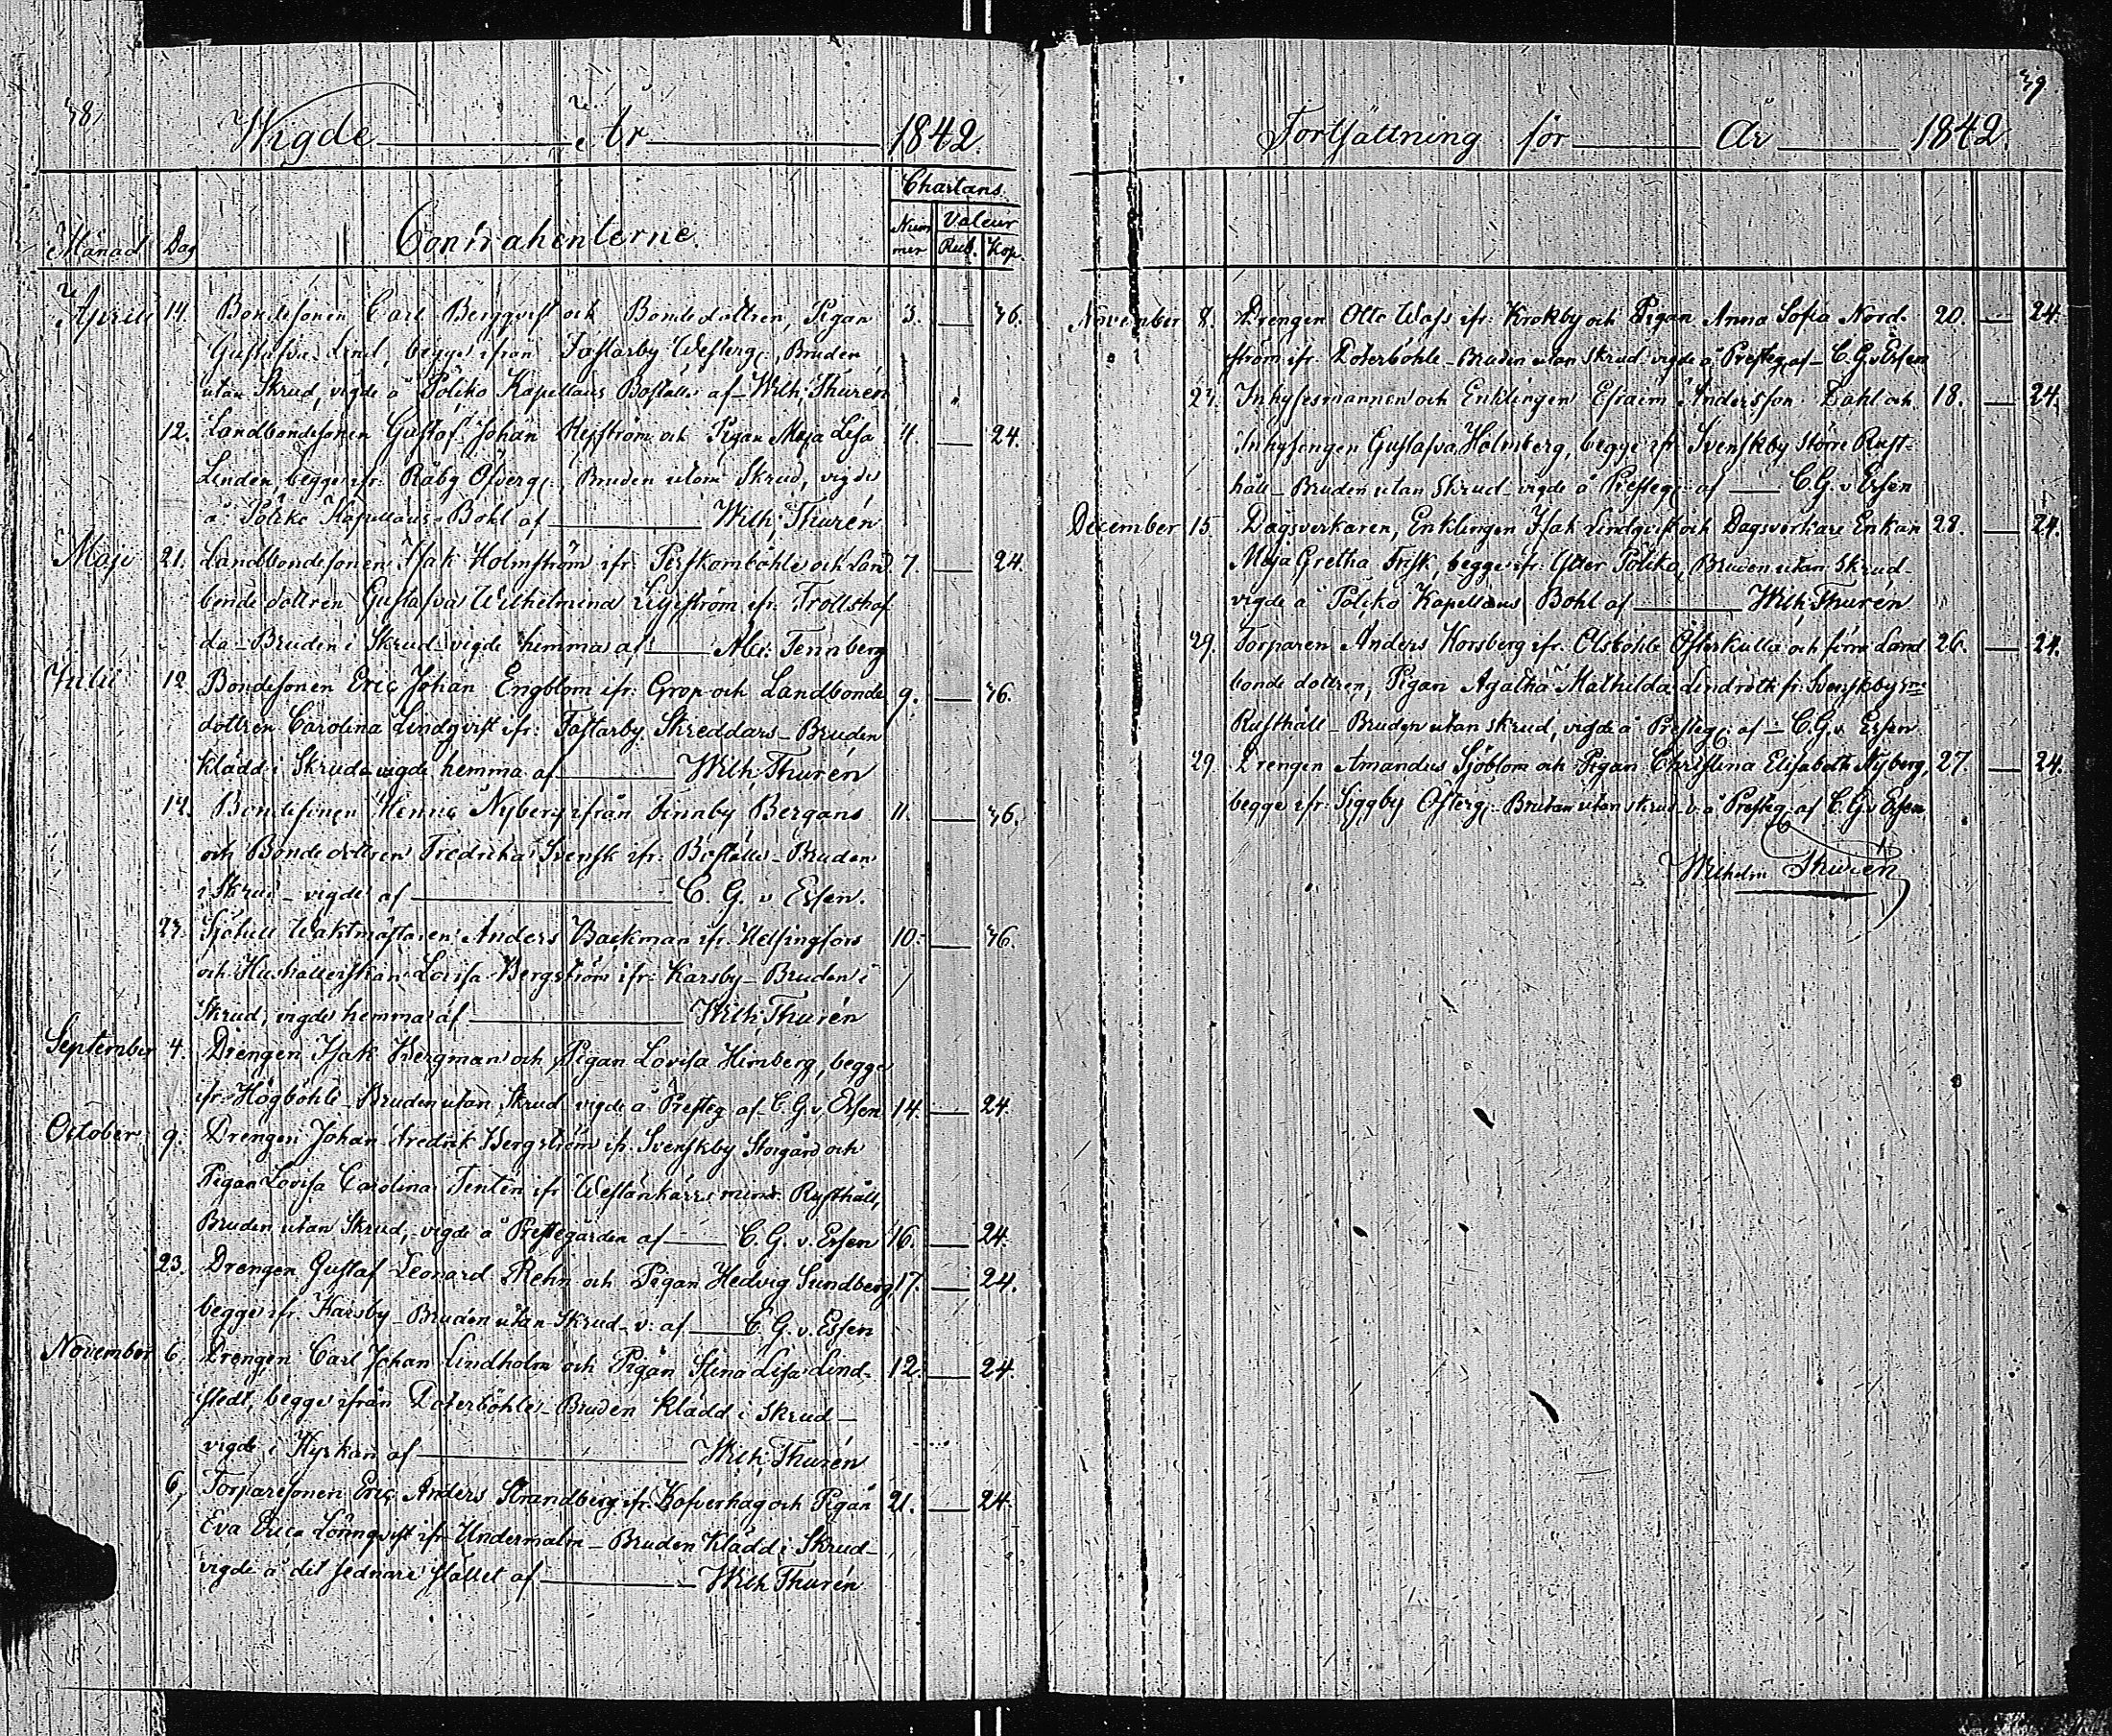 78.
Wigde År 1842.
Månad Dag Contrahenterne. Chartans
Nummer Valeur
Rub. Kop.
April 14. Bondesonen Carl Bergqvist och Bondedottren, Pigan 3. — 76.
Gustafva Lind, begge ifrån Fastarby Westerg:, Bruden
utan Skrud, vigde å Pöliko Kapellans Boställe af — Wilh: Thurén
12. Landbondesonen Gustaf Johan Refström och Pigan Maja Lisa 4. — 24.
Linden begge ifr: Råby Öfverg:, Bruden utom Skrud, vigde
å Pöliko Kapellans Bohl af — Wilh: Thurén
Maji 21. Landbondesonen Isak Holmström ifr: Perskomböhle och Land 7. — 24.
bonde dottren Gustafva Wilhelmina ifr: Trollshof
da — Bruden i Skrud — vigde hemma af — Alex: Tennberg
Julii 12. Bondesonen Eric Johan Engblom ifr: Grop och Landbonde 9. — 76.
dottren Carolina Lindqvist ifr: Fastarby Skreddars — Bruden
klädd i Skrud — vigde hemma af — Wilh: Thurén
14. Bondesonen Henric Nyberg ifrån Finnby Bergans 11. — 76.
och Bonde dottren Fredrika Svensk ifr: Boställe — Bruden
i Skrud — vigde af — C. G. v Essen.
27. Sjötull Waktmästaren Anders Backman ifr: Helsingfors 10. — 76.
och Hushållerskan Lovisa Bergström ifr: Karsby — Bruden i
Skrud, vigde hemma af — Wilh: Thurén
September 4. Drengen Isak Bergman och Pigan Lovisa Himberg, begge
ifr: Högböhle — Bruden utan Skrud vigde å Presteg. af — C. G. v. Essen 14. — 24.
October 9. Drengen Johan Fredrik Bergström ifr: Svenskby Storgård och
Pigan Lovisa Carolina Tentén ifr: Westankärrs mindr: Rusthåll,
Bruden utan Skrud, vigde å Prestegården af — C. G. v. Essen 16. — 24.
23. Drengen Gustaf Leonard Rehn och Pigan Hedvig Sundberg 17. — 24.
begge ifr: Karsby — Bruden utan Skrud — v: af — C. G. v. Essen
November 6. Drengen Carl Johan Lindholm och Pigan Stina Lisa Lind- 12. — 24.
stedt, begge ifrån Döterböhle — Bruden klädd i Skrud —
vigde i Kyrkan af — Wilh: Thurén
6. Torparesonen Eric Anders Strandberg ifr: Kofverhag och Pigan 21. — 24.
Eva Erica Lönnqvist ifr: Undermalm — Bruden klädd i Skrud —
vigde å det sednare stället af — Wilh: Thurén
79.
Fortsättning för År 1842.
November 8. Drengen Otto Wass ifr: Krokby och Pigan Anna Sofia Nord- 20. — 24.
ström ifr: Döterböhle — Bruden utan Skrud vigde å Presteg. af — C. G. v Essen
27. Inhysesmannen och Enklingen Efraim Andersson Dahl och 18. — 24.
Inhysingen Gustafva Holmberg, begge ifr: Svenskby större Rust-
håll — Bruden utan Skrud — vigde å Presteg: af — C. G. v Essen
December 15. Dagsverkaren, Enklingen Isak Lindqvist och Dagsverkare Enkan 28. — 24.
Maja Gretha Frisk, begge ifr: Ytter Pöliko, Bruden utan Skrud —
vigde å Pöliko Kapellans Bohl af — Wilh: Thurén
29. Torparen Anders Korsberg ifr: Olsböhle Österkulla och förra Land 26. — 24.
bonde dottren, Pigan Agatha Mathilda Lindroth fr: Svenskby
Rusthåll — Bruden utan skrud, vigde å Presteg: af — C. G. v Essen
29. Drengen Amandus Sjöblom och Pigan Christina Elisabeth Nyberg, 27. — 24.
begge ifr: Siggby Österg: Brutan utan skrud v. å Presteg. af C. G. v Essen
Wilhelm Thurén